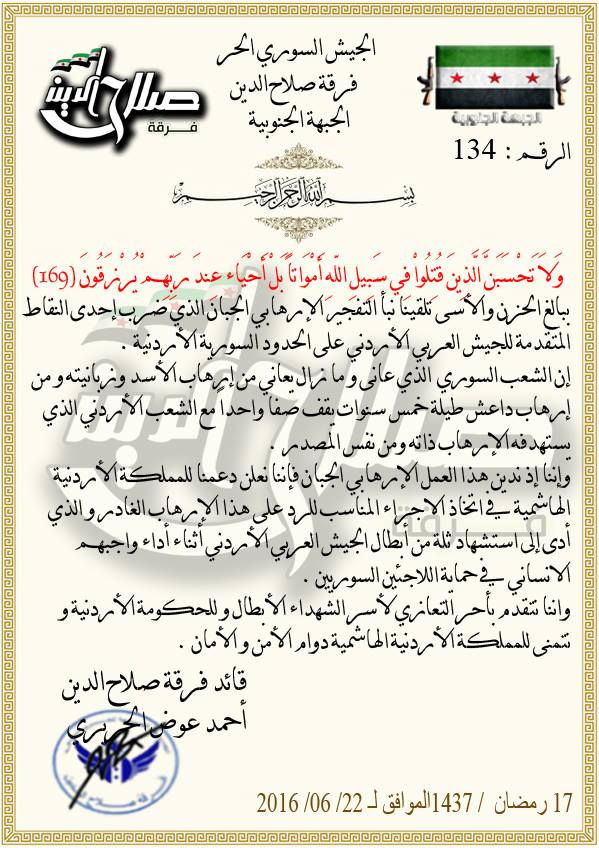 الجيش السوري الحر
فرقة صلاح الدين
الجبهة الجنوبية
صلاح الدين
فرقة
الجبهة الجنوبية
الرقم : 134
بسم الله الرحمن الرحيم
وَلاَ تَحْسَبَنَّ الَّذِينَ قُتِلُواْ فِي سَبِيلِ اللّهِ أَمْوَاتاً بَلْ أَحْيَاء عِندَ رَبِّهِمْ يُرْزَقُونَ (169)
ببالغ الحزن والأسى تلقينا نبأ التفجير الإرهابي الجبان الذي ضرب إحدى النقاط
المتقدمة للجيش العربي الأردني على الحدود السورية الأردنية .
إن الشعب السوري الذي عانى وما زال يعاني من إرهاب الأسد وزبانيته و من
إرهاب داعش طيلة خمس سنوات يقف صفا واحداً مع الشعب الأردني الذي
يستهدفه الإرهاب ذاته ومن نفس المصدر .
وإننا إذ ندين هذا العمل الإرهابي الجبان فإننا نعلن دعمنا للمملكة الأردنية
الهاشمية في اتخاذ الاجراء المناسب للرد على هذا الإرهاب الغادر و الذي
أدى إلى استشهاد ثلة من أبطال الجيش العربي الأردني أثناء أداء واجبهم
الانساني في حماية اللاجئين السوريين .
واننا نتقدم بأحر التعازي لأسر الشهداء الأبطال و للحكومة الأردنية و
نتمنى للمملكة الأردنية الهاشمية دوام الأمن و الأمان .
قائد فرقة صلاح الدين
أحمد عوض الحريري
17 رمضان / 1437الموافق لـ 22/ 06/ 2016